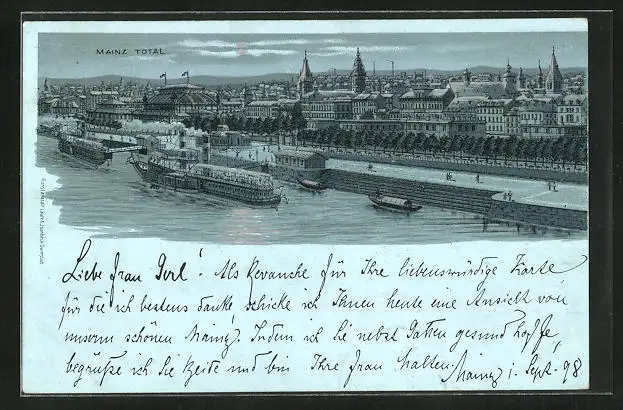 MAINZ TOTAL.
Liebe Frau! Als Revanche für Ihre liebenswürdige Karte
für die ich bestens danke schicke ich Ihnen heute eine Ansicht von
unserm schönen Mainz. Indem ich Sie nebst Gatten gesund hoffe,
begrüße ich Sie Beide und bin Ihre Frau
Mainz i. Sept. 98